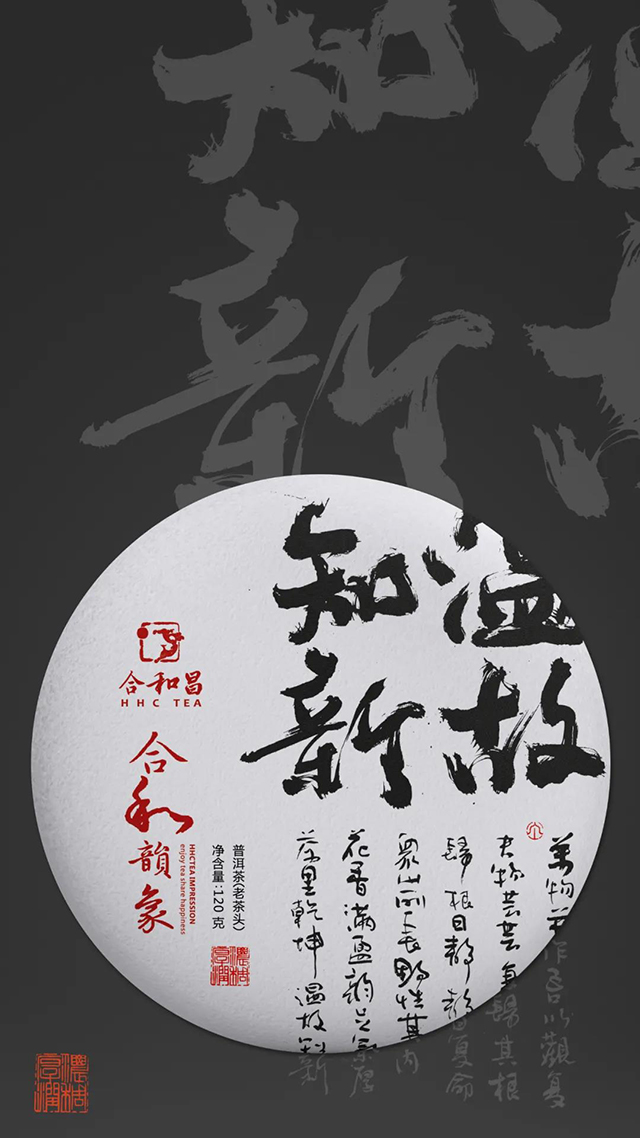 知 温
新 故
温故
知新
萬物并作吾以觀复
夫物芸芸各歸其根
歸根曰静静曰复命
野性其内
花香滿盈韵足氣厚
茶里乾坤温故知新
合和昌
HHC TEA
合和韻象
HHCTEA IMPRESSION
enjoy tea share happiness
普洱茶(老茶头)
净含量:120 克